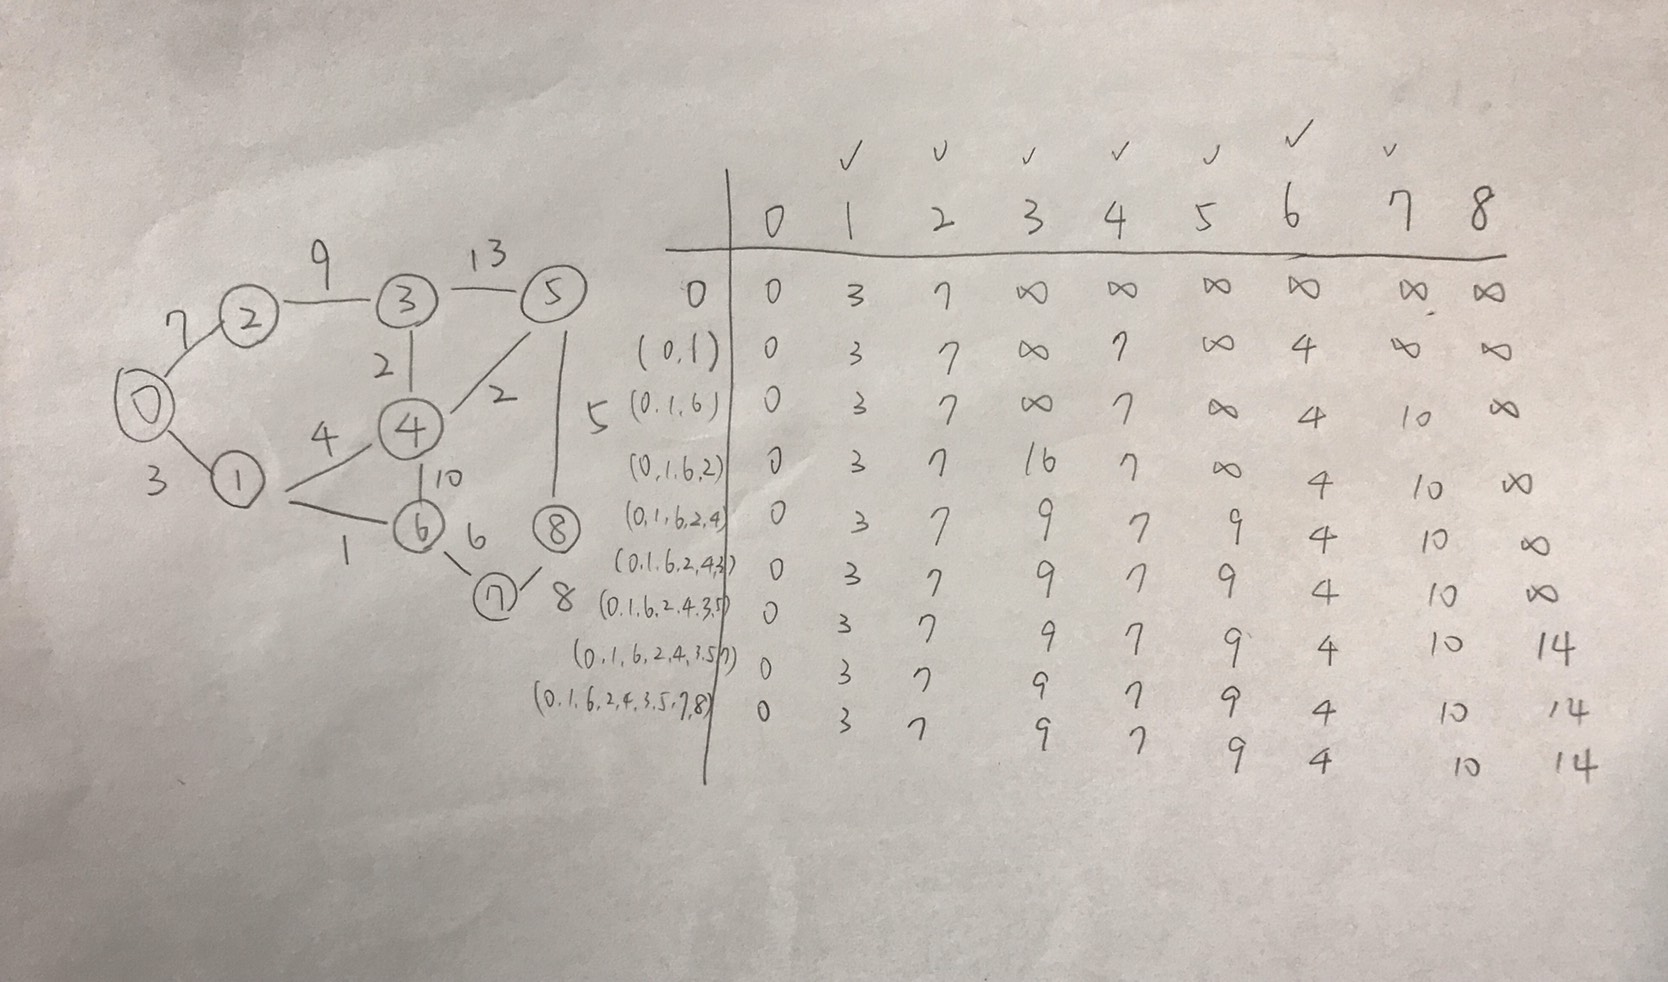 9 13
7 2 3 5
0 2
4 4 2 5
3 1 10
6 6 8
1
7 8
✓ ✓ ✓ ✓ ✓ ✓ ✓
0 1 2 3 4 5 6 7 8
0 0 3 7 ∞ ∞ ∞ ∞ ∞ ∞
(0,1) 0 3 7 ∞ 7 ∞ 4 ∞ ∞
(0.1,6) 0 3 7 ∞ 7 ∞ 4 10 ∞
(0,1.6,2) 0 3 7 16 7 ∞ 4 10 ∞
(0,1,6,2,4) 0 3 7 9 7 9 4 10 ∞
(0.1.6.2,4,3) 0 3 7 9 7 9 4 10 ∞
(0.1.6.2.4.3,5) 0 3 7 9 7 9 4 10 14
(0.1,6,2,4,3.5,7) 0 3 7 9 7 9 4 10 14
(0.1.6,2,4,3.5.7,8) 0 3 7 9 7 9 4 10 14